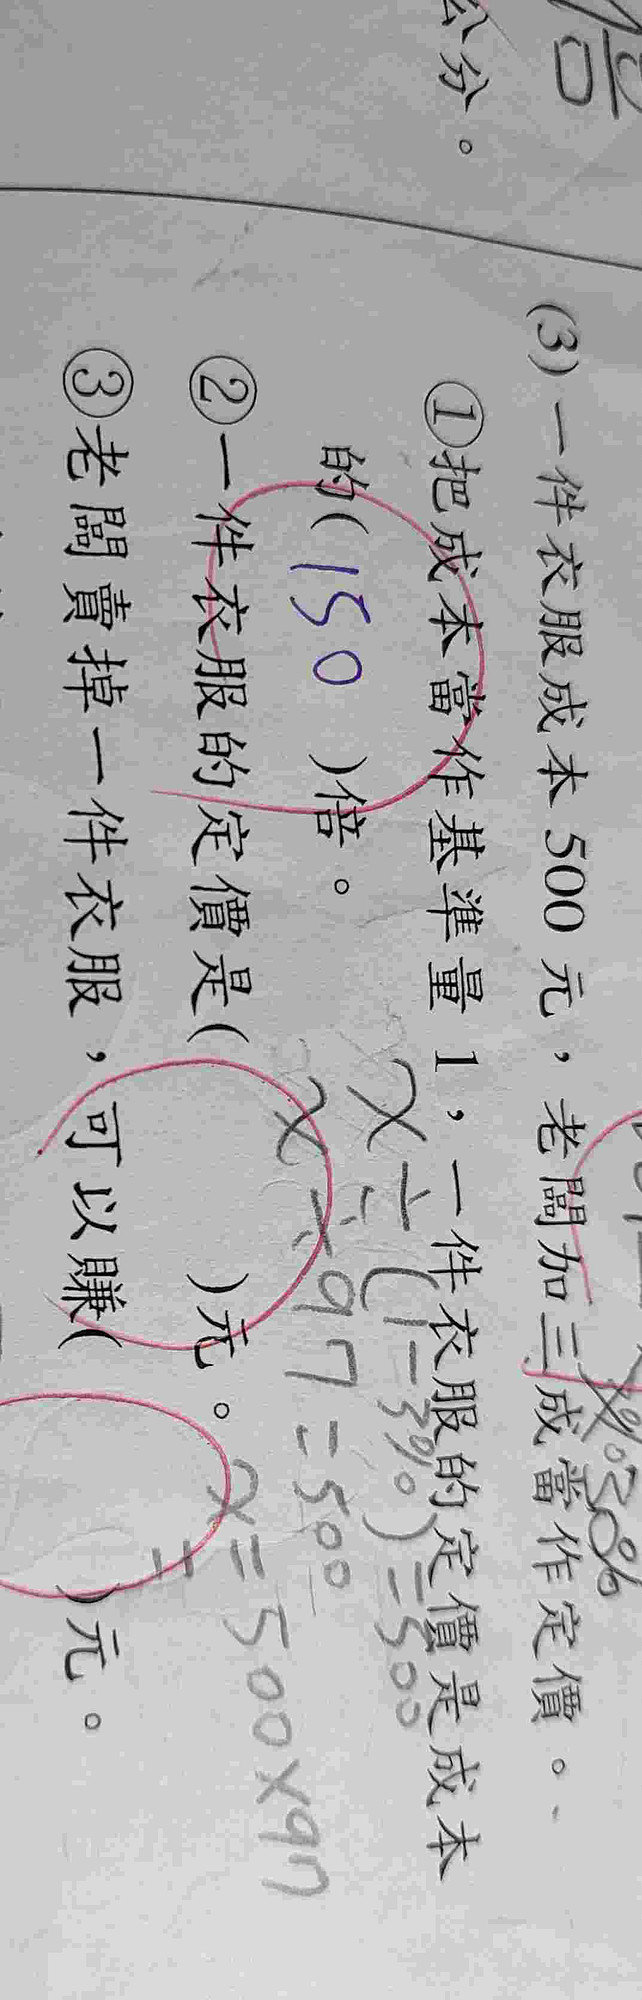 公分。
(3)一件衣服成本500元，老闆加三成當作定價。
30%
①把成本當作基準量1，一件衣服的定價是成本
的(150)倍。
x÷(1-3%)=500
x÷97=500
②一件衣服的定價是( )元。
x=500×97
=
③老闆賣掉一件衣服，可以賺( )元。